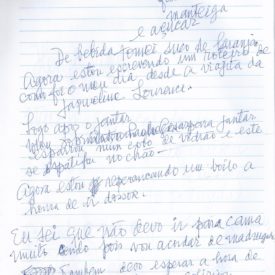 manteiga
e açucar
De bebida tomei suco de laranja
Agora estou escrevendo um roteiro de
como foi o meu dia desde a visita da
Jaqueline Lourenco.
Logo após o jantar
esbarrou num copo de vidro e este
se espatifou no chão
Agora estou preparando um bolo a
hora de ir dormir.
Eu sei que não devo ir para cama
muito cedo pois vou acordar de madrugada
Também devo esperar a hora de